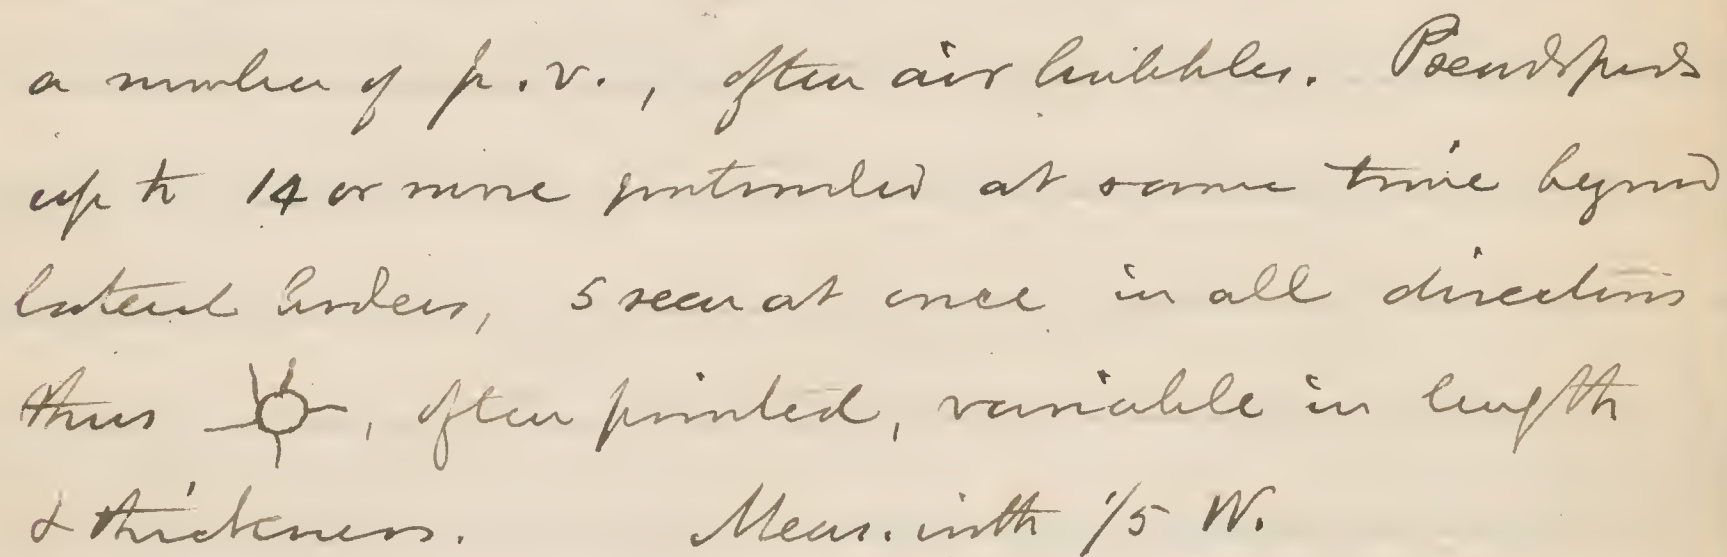 a number of p.v., often air bubbles. Pseudopods
up to 14 or more protruded at same time beyond
lateral borders, 5 seen at once in all directions
thus , often pointed, variable in length
& thickness. Meas. with 1/5 W.